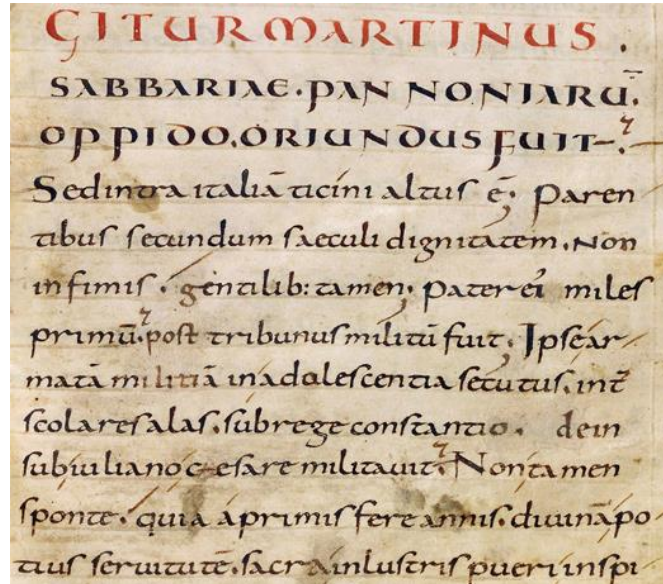 GITUR MARTINUS.
SABBARIAE. PANNONIARŪ.
OPPIDO. ORIUNDUS FUIT
Sed intra italiā ticini altus ē; Paren
tibus secundum saeculi dignitatem. Non
infimis. gentilib: tamen; Pater ei miles
primū. post tribunus militū fuit; Ipse ar
matā militiā in adolescentia secutus. int̄
scolares alas. sub rege constantio. dein
sub iuliano cęsare militavit. Non tamen
sponte. quia a primis fere annis. divinā po
tius servitutē. sacra inlustris pueri inspi